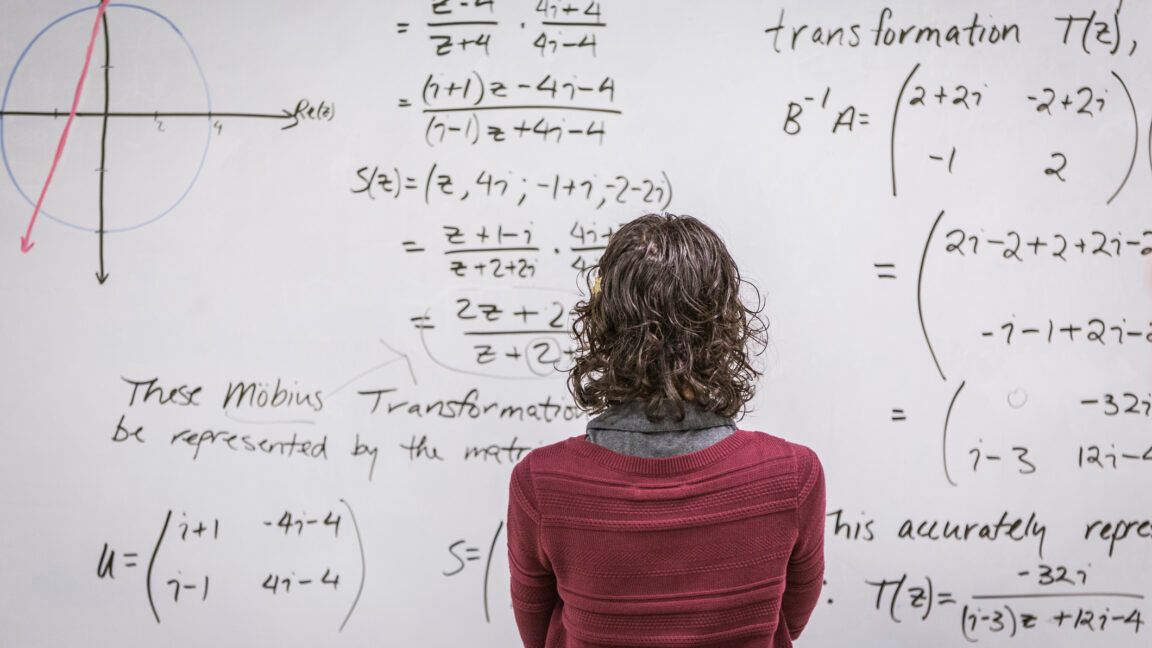 Re(z)
2 4
= z-4/z+4 · 4i+4/4i-4
= (i+1)z-4i-4/(i-1)z+4i-4
S(z)=(z,4i;-1+i,-2-2i)
= z+1-i/z+2+2i · 4i+
= 2z+2/z+2
These Möbius Transformation
be represented by the
u= (i+1 -4i-4
i-1 4i-4)
S= (
transformation T(z),
B⁻¹A= (2+2i -2+2i
-1 2)
= (2i-2+2+2i-2
-i-1+2i-2
= (0 -32i
i-3 12i-4
his accurately repres
T(z)= -32i/(i-3)z+12i-4